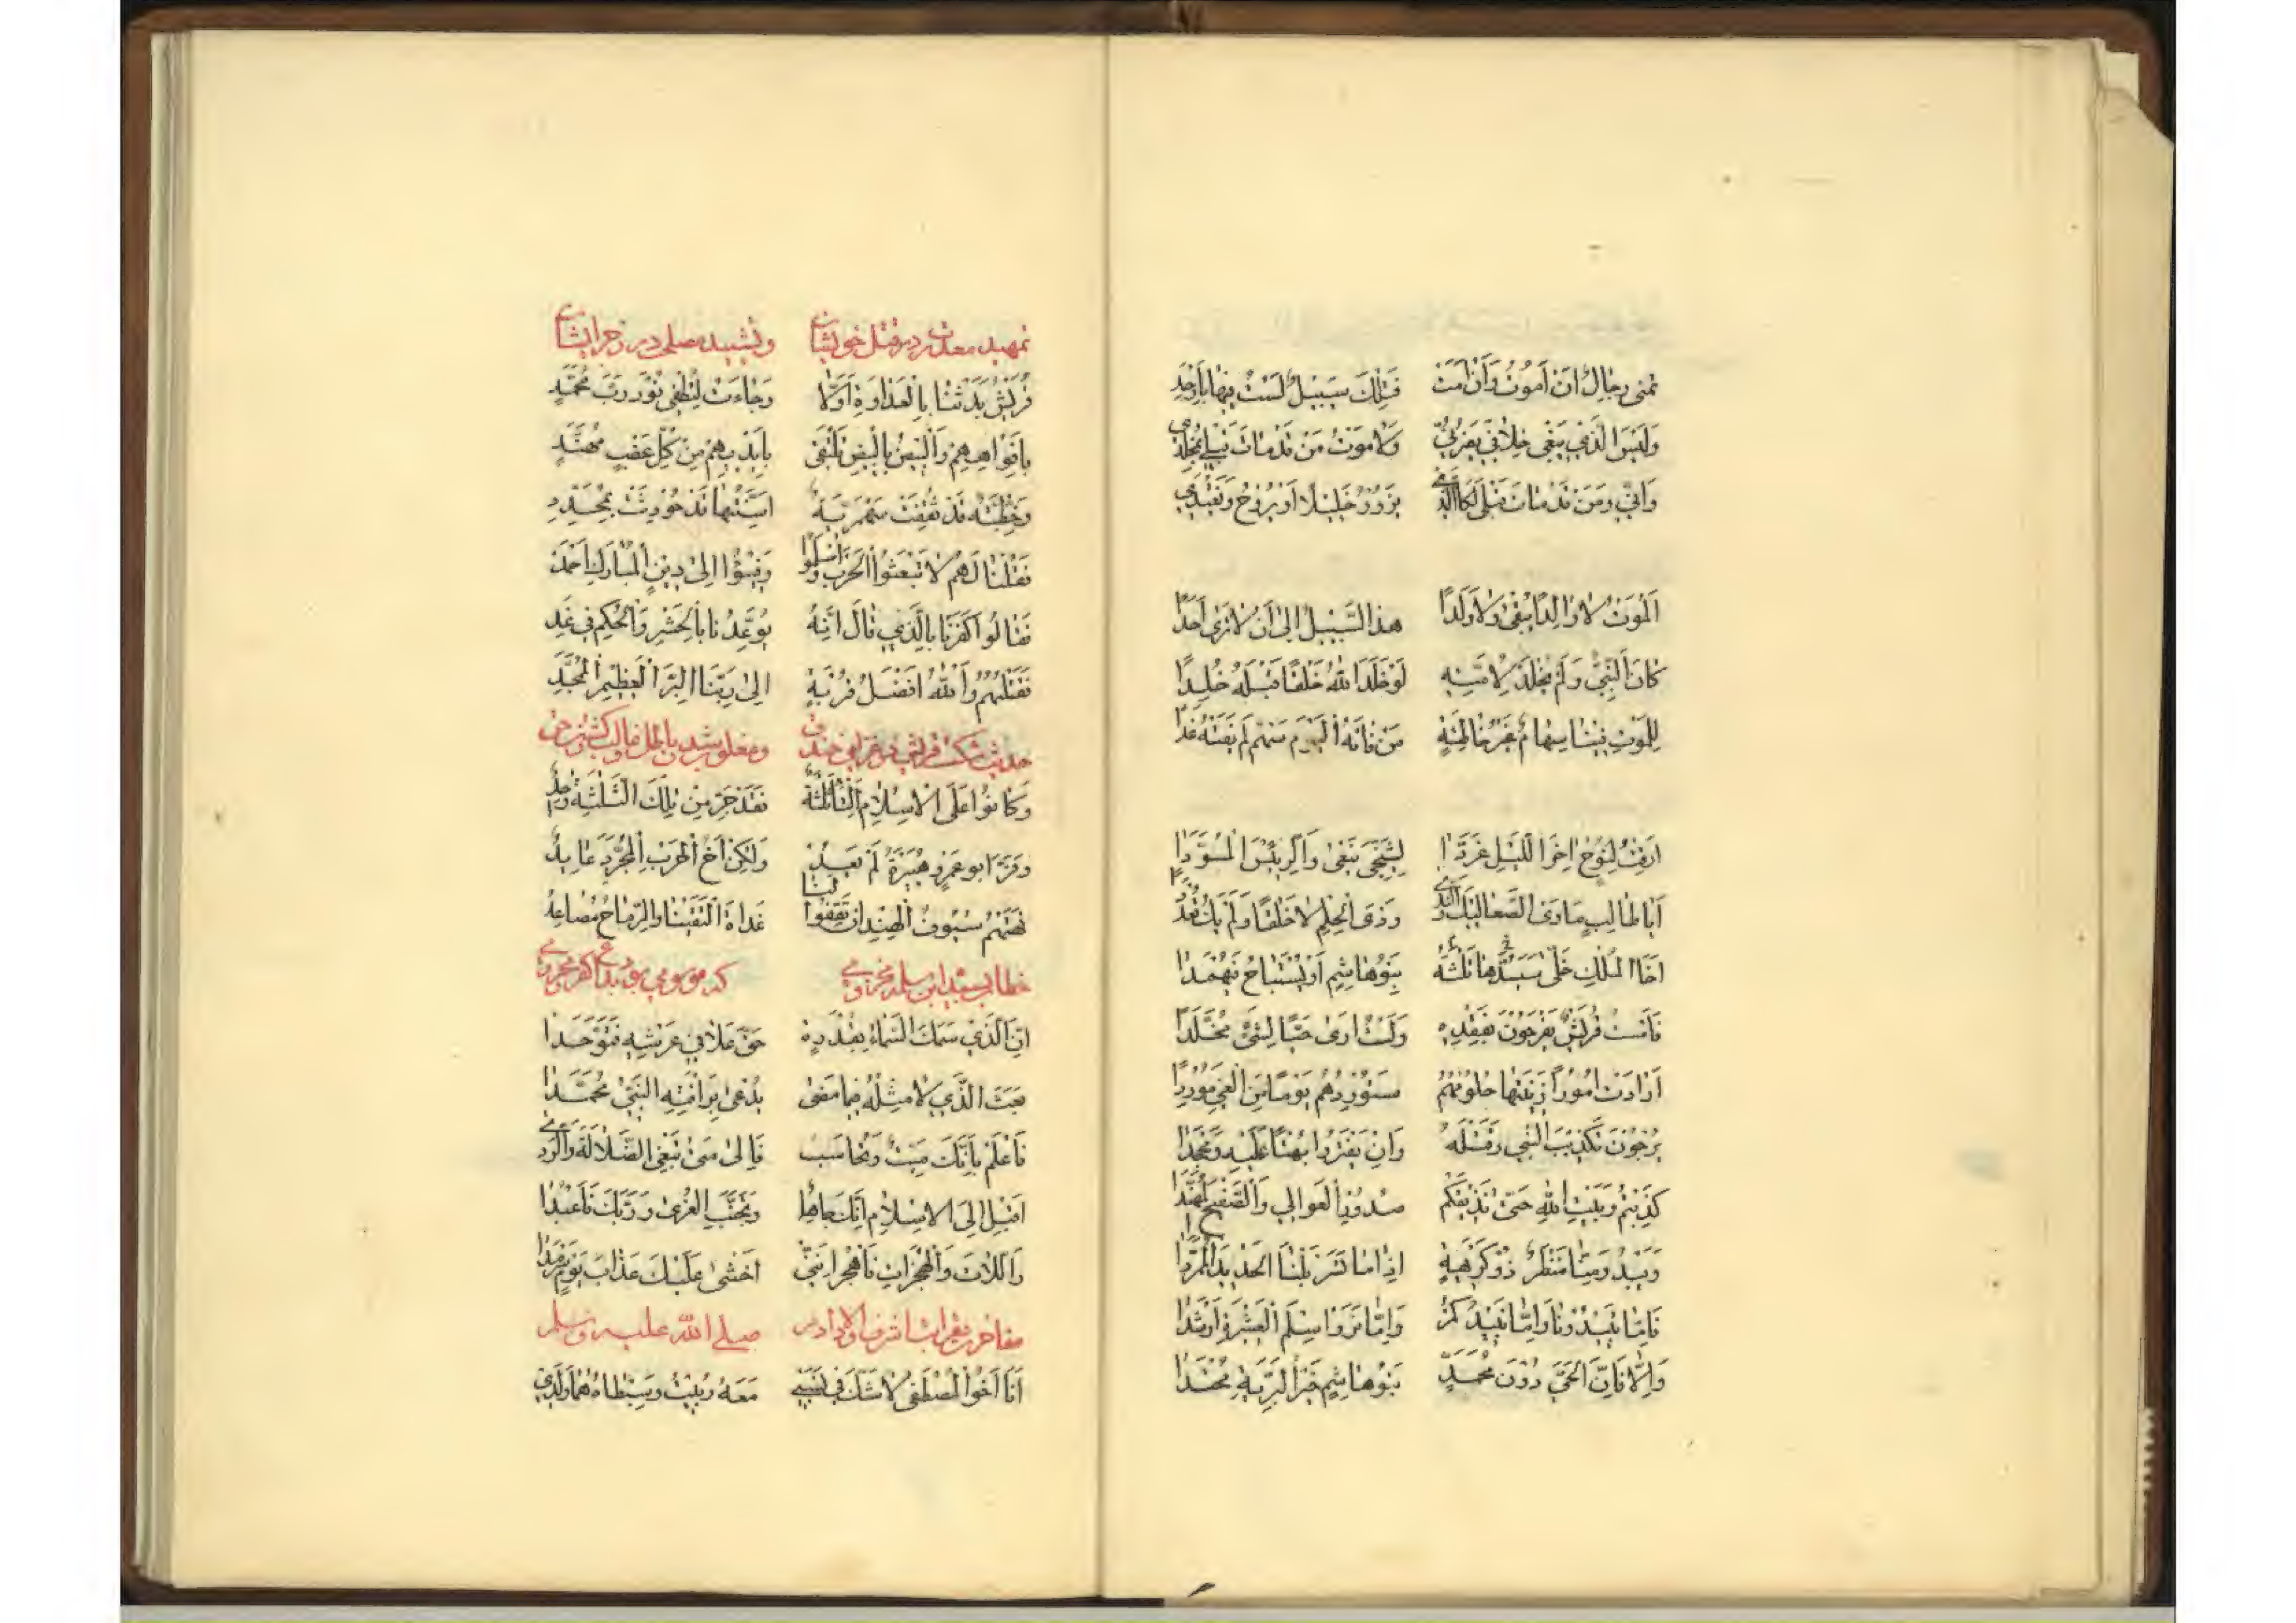 تمنى رجال ان اموت وان امت فتلك سبيل لست فيها باوحد
وليس الذي يبغي خلافي يضرني ولا موت من قد مات قبلي بمخلدي
واني ومن قد مات قبلي لكالذي يزور خليلا او يروح ويغتدي
الموت لا والدا يبقى ولا ولدا هذا السبيل الى ان لا ترى احدا
كان النبي ولم يخلد لامته لو خلد الله خلقا قبله خلدا
للموت فينا سهام غير خاطئة من فاته اليوم سهم لم يفته غدا
ارقت لنوح اخر الليل غردا لشيخي ينعى والرئيس المسودا
ابا طالب ماوى الصعاليك ذا الندى وذى الحلم لا خلفا ولم يك قعددا
اخا الملك خلى ثلمة سيسدها بنو هاشم او يستباح فيهمدا
فامست قريش يفرحون بفقده ولست ارى حيا لشئ مخلدا
ارادت امورا زينتها حلومهم ستوردهم يوما من الغي موردا
يرجون تكذيب النبي وقتله وان يفتروا بهتا عليه ومجحدا
كذبتم وبيت الله حتى نذيقكم صدور العوالي والصفيح المهندا
ويبد ومنا منظر ذو كريهة اذا ما تسربلنا الحديد المسردا
فاما تبيدونا واما نبيدكم واما تروا سلم العشيرة ارشدا
والا فان الحي دون محمد بنو هاشم خير البرية محتدا
تمهيد معذرت در قتل خويشان وتشييد صلح در زجر ايشان
قريش بدتنا بالعداوة اولا وجاءت لتطفى نور رب محمد
بافواههم والبيض بالبيض تلتقى بايديهم من كل عضب مهند
وخطية قد ثقفت سمهرية اسنتها قد حودثت بمحدد
فقلنا لهم لا تبعثوا الحرب واسلموا وفيؤا الى دين المبارك احمد
فقالوا كفرنا بالذي قال انه يوعدنا بالحشر والحكم في غد
فقتلهم والله افضل قربة الى ربنا البر العظيم الممجد
حديث شكست قريش در غزاى خندق ومغلوب شدن باطل وغالب كشتن حق
وكانوا على الاسلام البا ثلثة فقد خر من تلك الثلثة واحد
وفر ابو عمرو هبيرة لم يعد لنا ولكن اخ الحرب المجرب عايد
نهتهم سيوف الهند ان يقفوا لنا غداة التقينا والرماح مصايد
خطاب بسعيد ابن سلمة مخزومى كه موسوم بود
ان الذي سمك السماء بقدرة حتى علا في عرشه فتوحدا
بعث الذي لا مثله فيما مضى يدعى برافته النبي محمدا
فاعلم بانك ميت ومحاسب فالى متى تبغي الضلالة والردى
اقبل الى الاسلام انك جاهل وتجنب العزى وربك فاعبدا
واللات والهجرات فاهجر انني اخشى عليك عذاب يوم سرمدا
مفاخرت بقرابت اشرف اولاد ادم صلى الله عليه وسلم
انا اخو المصطفى لا شك في نسبي معه ربيت وسبطاه هما ولدي